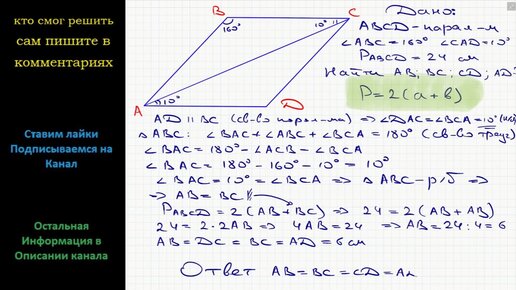 кто смог решить
сам пишите в
комментариях
Ставим лайки
Подписываемся на
Канал
Остальная
Информация в
Описании канала
B
C
A
D
160°
10°
10°
Дано:
ABCD-парал-м
∠ABC=160° ∠CAD=10°
P_ABCD = 24 см
Найти AB; BC; CD; AD
P=2(a+b)
AD || BC (св-во парал-ма) ⇒ ∠DAC=∠BCA=10°
△ABC: ∠BAC+∠ABC+∠BCA=180° (св-во треуг)
∠BAC=180°-∠ACB-∠BCA
∠BAC = 180°-160°-10° = 10°
∠BAC=10°=∠BCA ⇒ △ABC-р/б ⇒
⇒ AB=BC
P_ABCD = 2(AB+BC) ⇒ 24=2(AB+AB)
24=2·2AB ⇒ 4AB=24 ⇒ AB=24:4=6
AB=DC=BC=AD=6см
Ответ AB=BC=CD=A